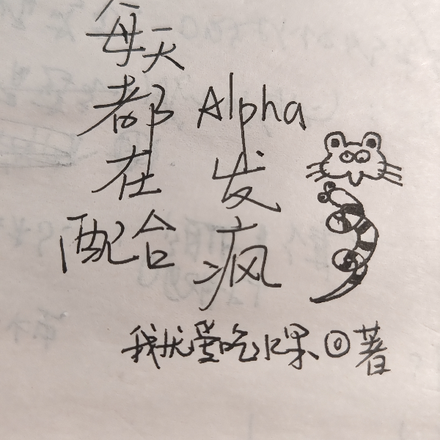 每天
都在配合
Alpha
发疯
我尤爱吃水果◎著